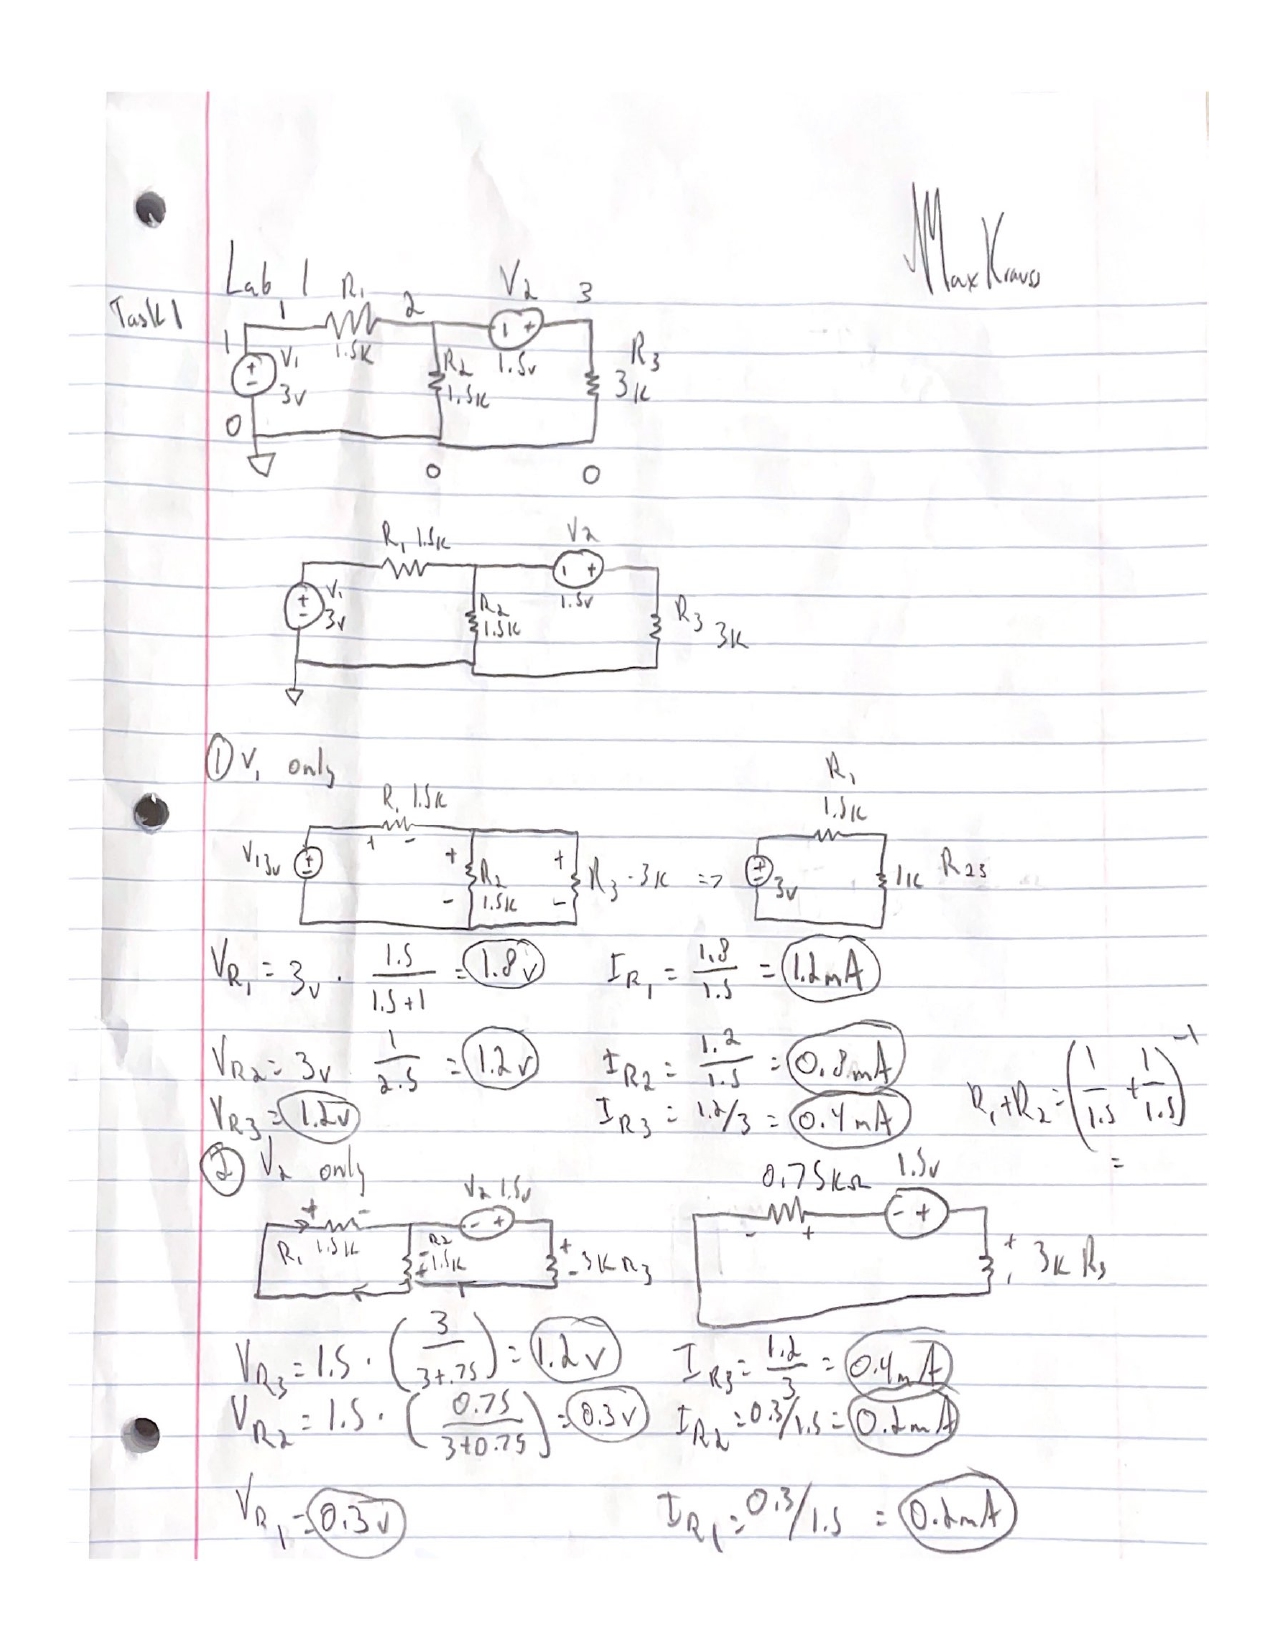 Max Krauss
Lab 1
Task 1
1 R₁ 2 V₂ 3
1 1.5K - +
+ - V₁ 3v R₂ 1.5K 1.5v R₃ 3K
0
0 0
R₁ 1.5K V₂
+ - V₁ 3v R₂ 1.5K - + 1.5v R₃ 3K
① V₁ only
R₁ 1.5K R₁ 1.5K
+ -
V₁ 3v + - + R₂ 1.5K - + R₃ - 3K - => + - 3v 1K R₂₃
V_R₁ = 3v · 1.5/(1.5+1) = 1.8v I_R₁ = 1.8/1.5 = 1.2mA
V_R2 = 3v 1/2.5 = 1.2v I_R2 = 1.2/1.5 = 0.8mA
V_R3 = 1.2v I_R3 = 1.2/3 = 0.4mA R₁+R₂ = (1/1.5 + 1/1.5)⁻¹
=
② V₂ only
+ - V₂ 1.5v 0.75KΩ 1.5v
R₁ 1.5K R₂ - 1.5K + - + + - 3K R₃ - + - + + - 3K R₃
V_R3 = 1.5 · (3/(3+.75)) = 1.2v I_R3 = 1.2/3 = 0.4mA
V_R2 = 1.5 · (0.75/(3+0.75)) = 0.3v I_R2 = 0.3/1.5 = 0.2mA
V_R₁ = 0.3v I_R₁ = 0.3/1.5 = 0.2mA